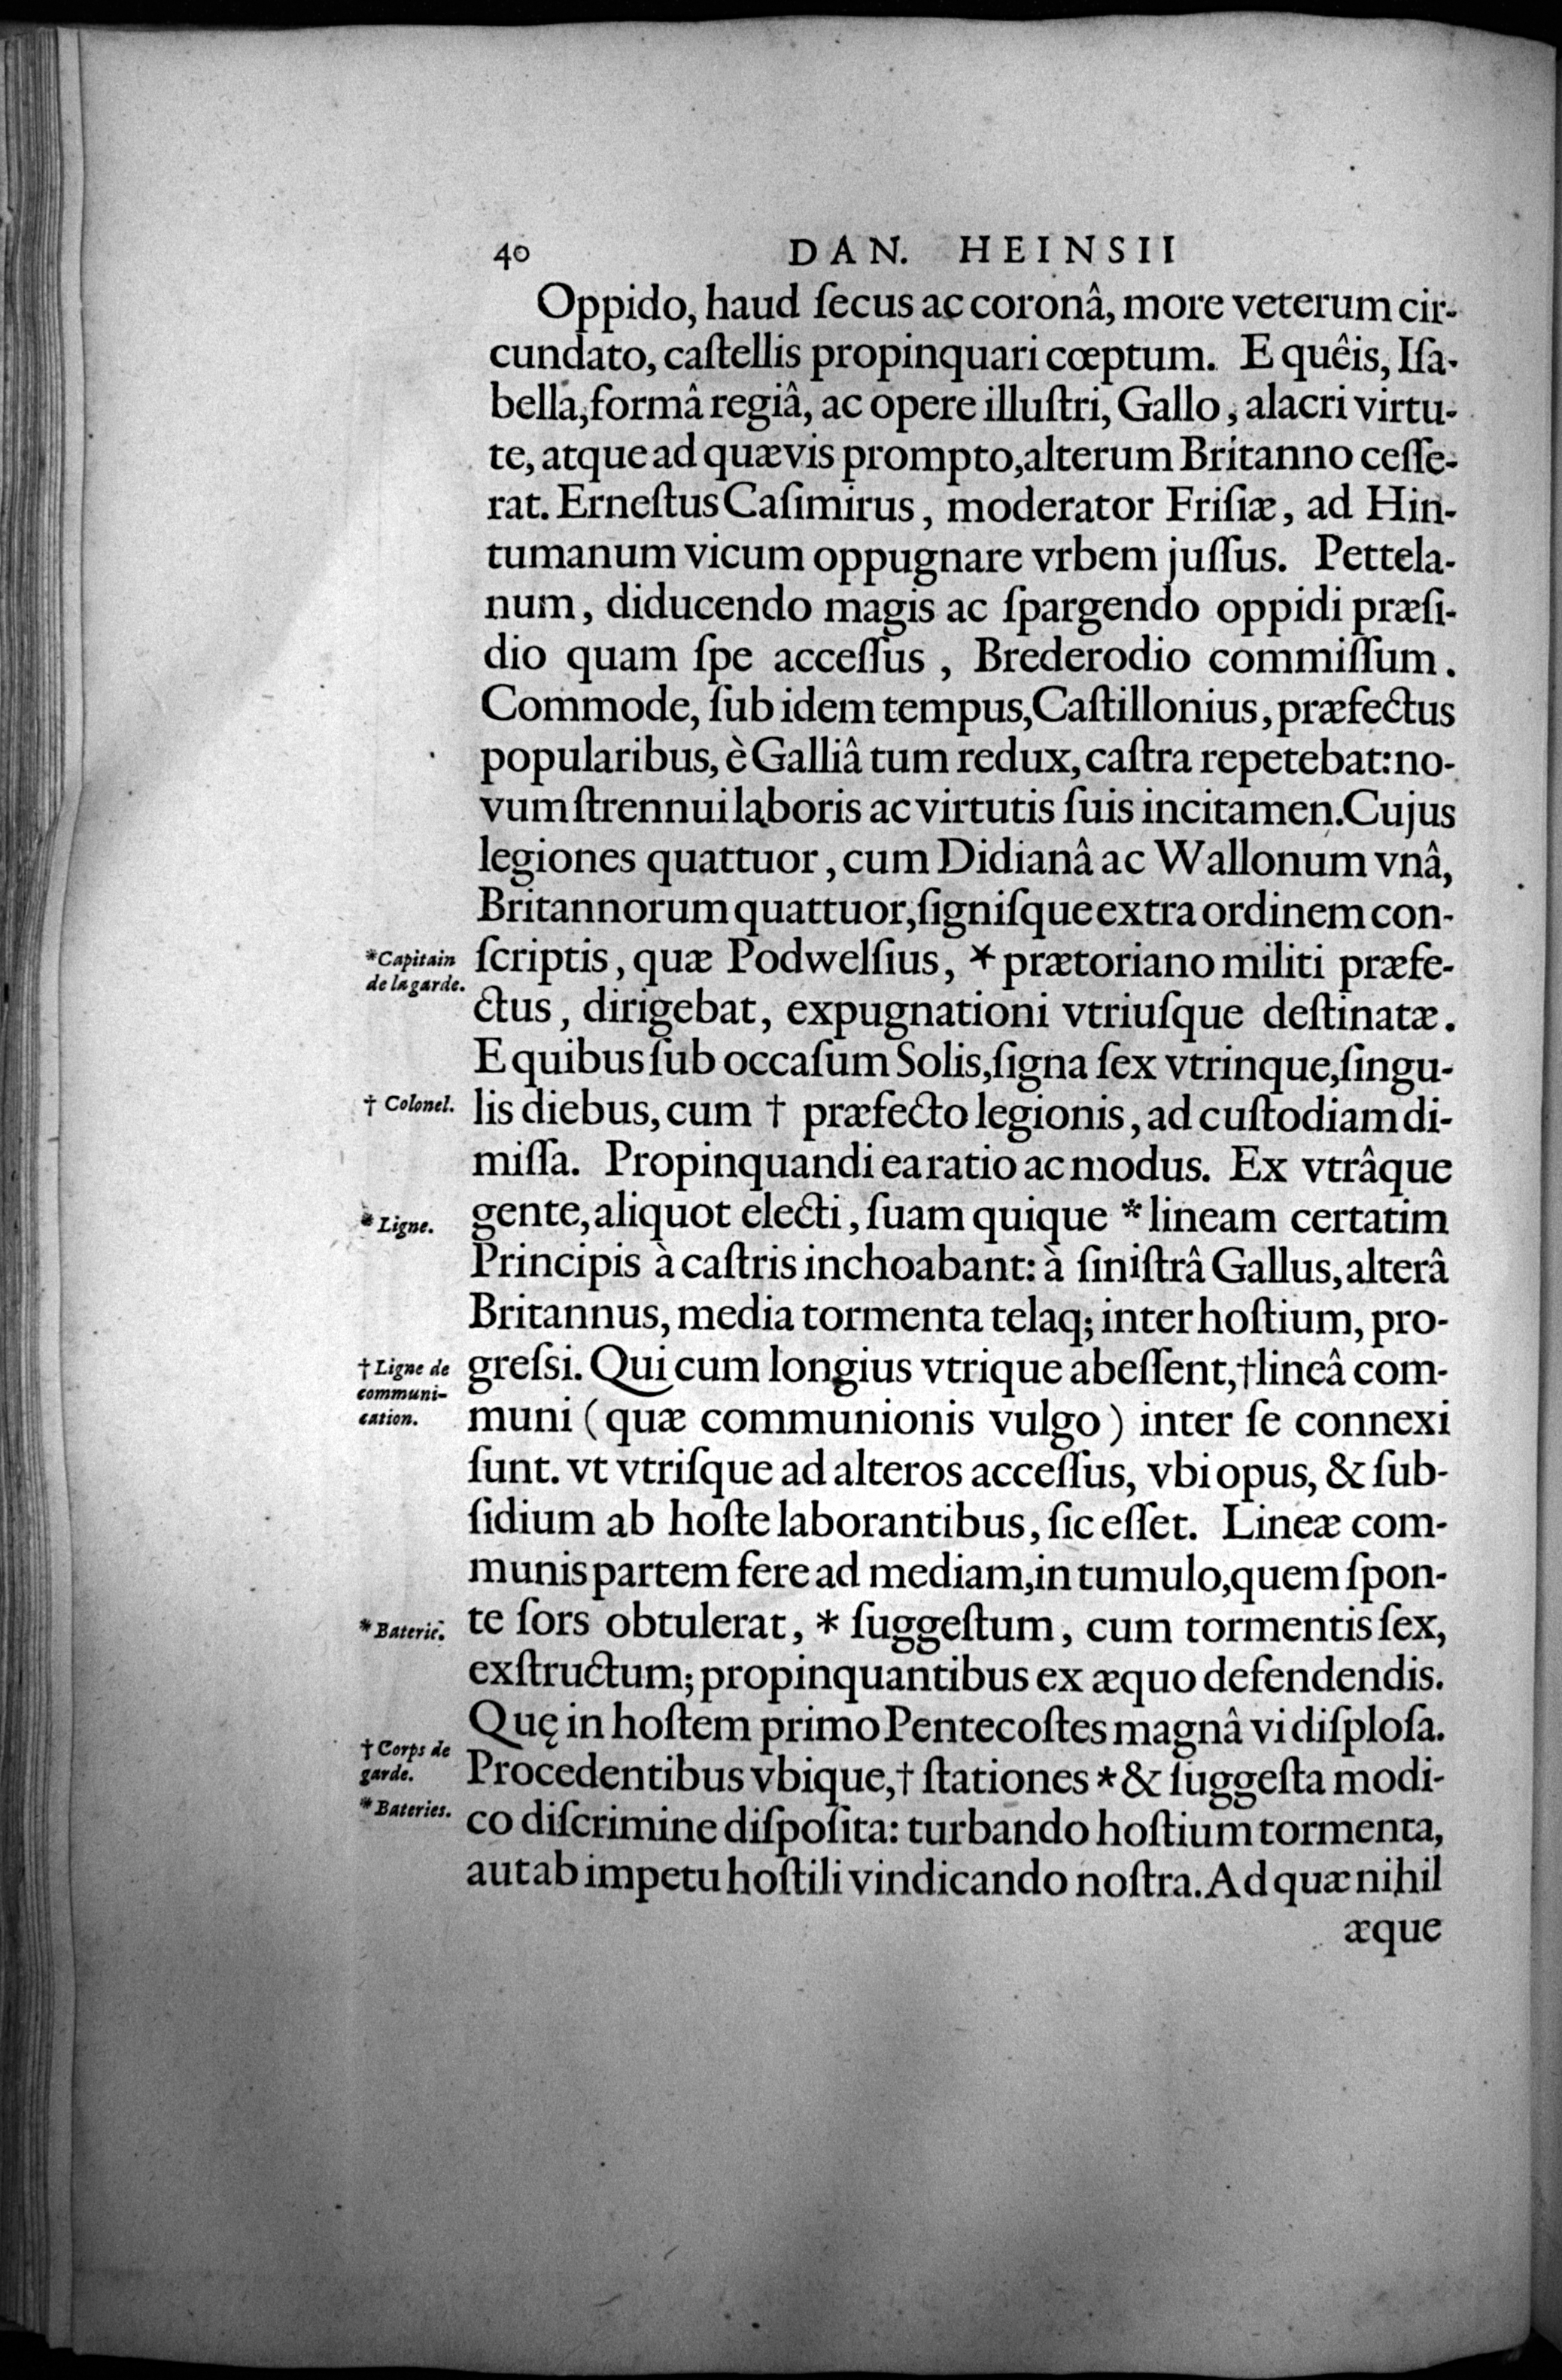 40 DAN. HEINSII
Oppido, haud ſecus ac coronâ, more veterum cir-
cundato, caſtellis propinquari cœptum. E quêis, Iſa-
bella, formâ regiâ, ac opere illuſtri, Gallo, alacri virtu-
te, atque ad quævis prompto, alterum Britanno ceſſe-
rat. Erneſtus Caſimirus, moderator Friſiæ, ad Hin-
tumanum vicum oppugnare vrbem juſſus. Pettela-
num, diducendo magis ac ſpargendo oppidi præſi-
dio quam ſpe acceſſus, Brederodio commiſſum.
Commode, ſub idem tempus, Caſtillonius, præfectus
popularibus, è Galliâ tum redux, caſtra repetebat: no-
vum ſtrennui laboris ac virtutis ſuis incitamen. Cujus
legiones quattuor, cum Didianâ ac Wallonum vnâ,
Britannorum quattuor, ſigniſque extra ordinem con-
*Capitain de la garde.
ſcriptis, quæ Podwelſius, * prætoriano militi præfe-
ctus, dirigebat, expugnationi vtriuſque deſtinatæ.
E quibus ſub occaſum Solis, ſigna ſex vtrinque, ſingu-
† Colonel.
lis diebus, cum † præfecto legionis, ad cuſtodiam di-
miſſa. Propinquandi ea ratio ac modus. Ex vtrâque
* Ligne.
gente, aliquot electi, ſuam quique * lineam certatim
Principis à caſtris inchoabant: à ſiniſtrâ Gallus, alterâ
Britannus, media tormenta telaq; inter hoſtium, pro-
† Ligne de
communi-
cation.
greſsi. Qui cum longius vtrique abeſſent, † lineâ com-
muni (quæ communionis vulgo) inter ſe connexi
ſunt. vt vtriſque ad alteros acceſſus, vbi opus, & ſub-
ſidium ab hoſte laborantibus, ſic eſſet. Lineæ com-
munis partem fere ad mediam, in tumulo, quem ſpon-
* Baterie.
te ſors obtulerat, * ſuggeſtum, cum tormentis ſex,
exſtructum; propinquantibus ex æquo defendendis.
Quę in hoſtem primo Pentecoſtes magnâ vi diſploſa.
† Corps de
garde.
Procedentibus vbique, † ſtationes * & ſuggeſta modi-
* Bateries.
co diſcrimine diſpoſita: turbando hoſtium tormenta,
aut ab impetu hoſtili vindicando noſtra. Ad quæ nihil
æque